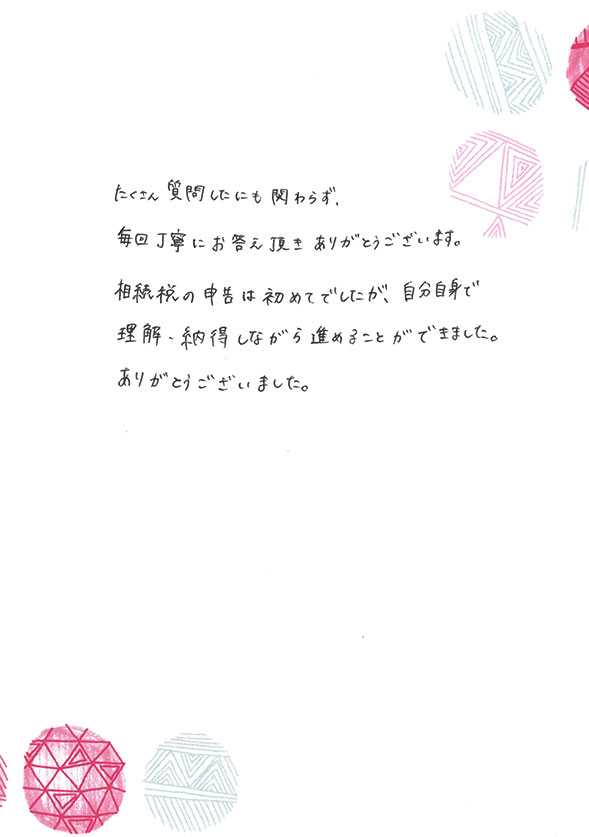 たくさん質問したにも関わらず、
毎回丁寧にお答え頂きありがとうございます。
相続税の申告は初めてでしたが、自分自身で
理解・納得しながら進めることができました。
ありがとうございました。